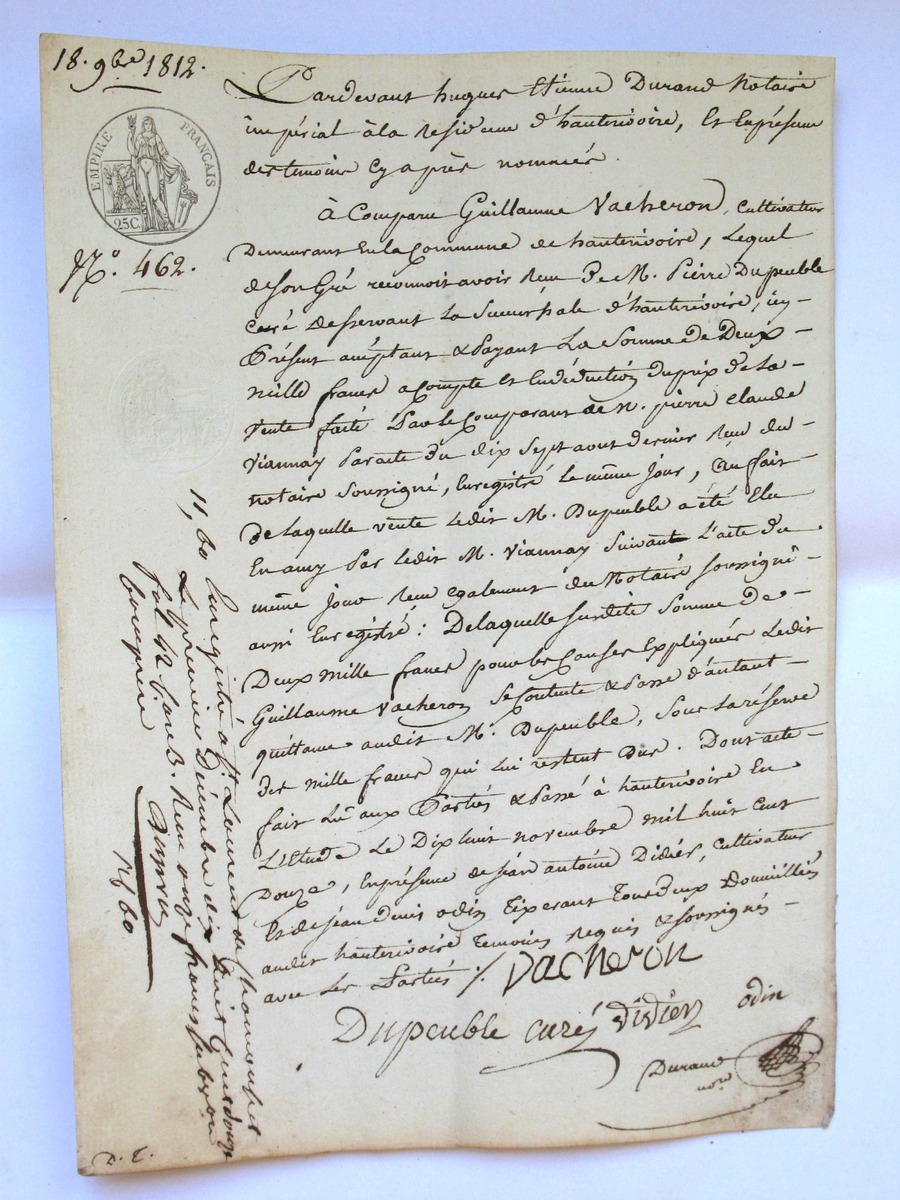 18. 9bre 1812.
EMPIRE FRANÇAIS
25C
No. 462.
Pardevant hugues Etienne Durand Notaire
impérial à la Residence d'hauterivoire, Et En présence
des temoins cy après nommés.
à Comparu Guillaume Vacheron, Cultivateur
Demeurant En la Commune de hauterivoire, Lequel
de Son Gré reconnoit avoir Reçu De M. Pierre Dupeuble
curé desservant La Succursale d'hauterivoire, icy
Présent acceptant & Payant La Somme de Deux
mille francs acompte Et En déduction du prix de La
vente faite Par le Comparant de M. pierre Claude
Viannay Par acte du dix Sept aout dernier Reçu du
notaire soussigné, Enregistré Le même Jour, Au fait
de Laquelle vente Ledit M. Dupeuble a été Elu
En amy Par Ledit M. Viannay Suivant L'acte du
même jour Reçu Également du Notaire soussigné
aussi Enregistré : De laquelle Susdite Somme de
Deux mille francs pour les Causes Expliquées Ledit
Guillaume Vacheron Se Contente & Passe d'autant
quittance audit M. Dupeuble, Sous La réserve
des mille francs qui Lui restent Dus. Dont acte
fait Lu aux Parties & Passé à hauterivoire En
L'Etude Le Dix huit novembre mil huit Cent
Douze, En présence de Jean antoine Didier, Cultivateur
Et de Jean Denis odin Tixerant Tous Deux Domiciliés
audit hauterivoire Temoins Requis & Soussignés
avec Les Parties /.
Vacheron
Dupeuble curé Didier odin
Durand
nore
11, 60 Enregistré à St. Laurent de Chamousset
Le premier Décembre dix huit Cent douze
fol. 12 Reçu onze francs subvon
comprise
11f 60
D. T.